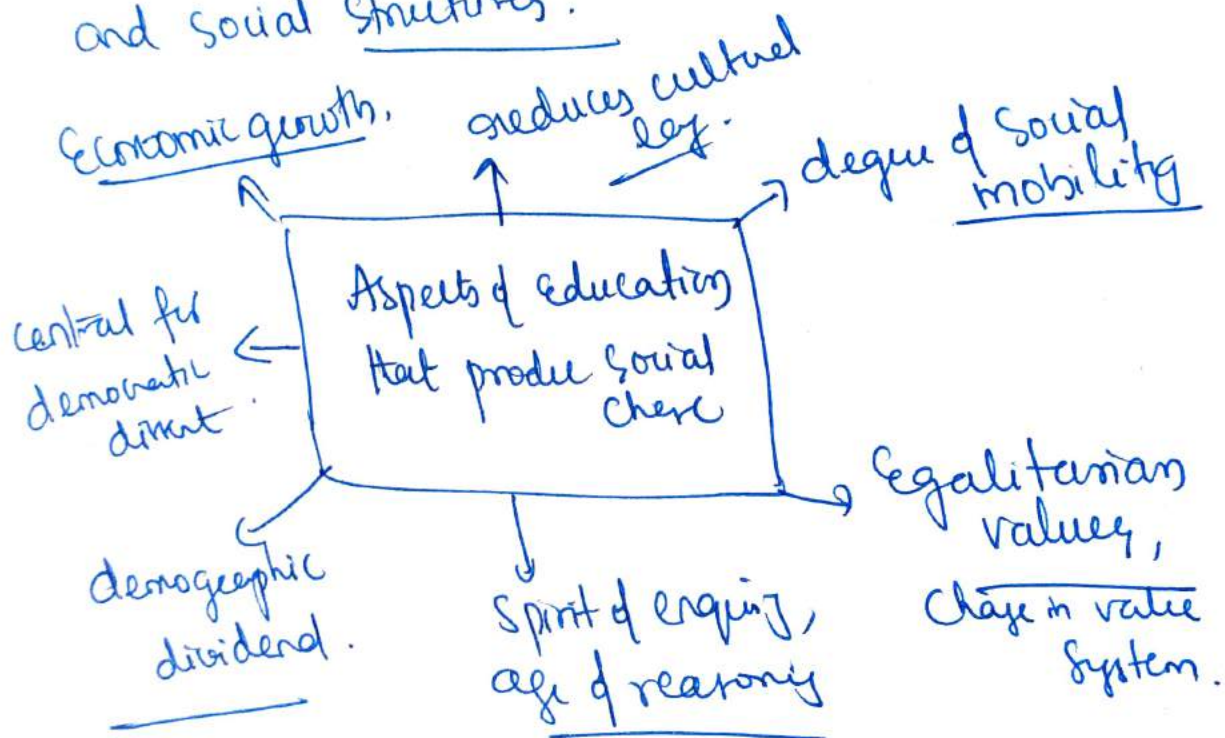 and social structures.
Economic growth.
reduces cultural
lag.
degree of Social
mobility
Aspects of education
that produce social
change
central for
democratic
dissent.
Egalitarian
values,
Change in value
System.
demographic
dividend.
Spirit of enquiry,
age of reasoning